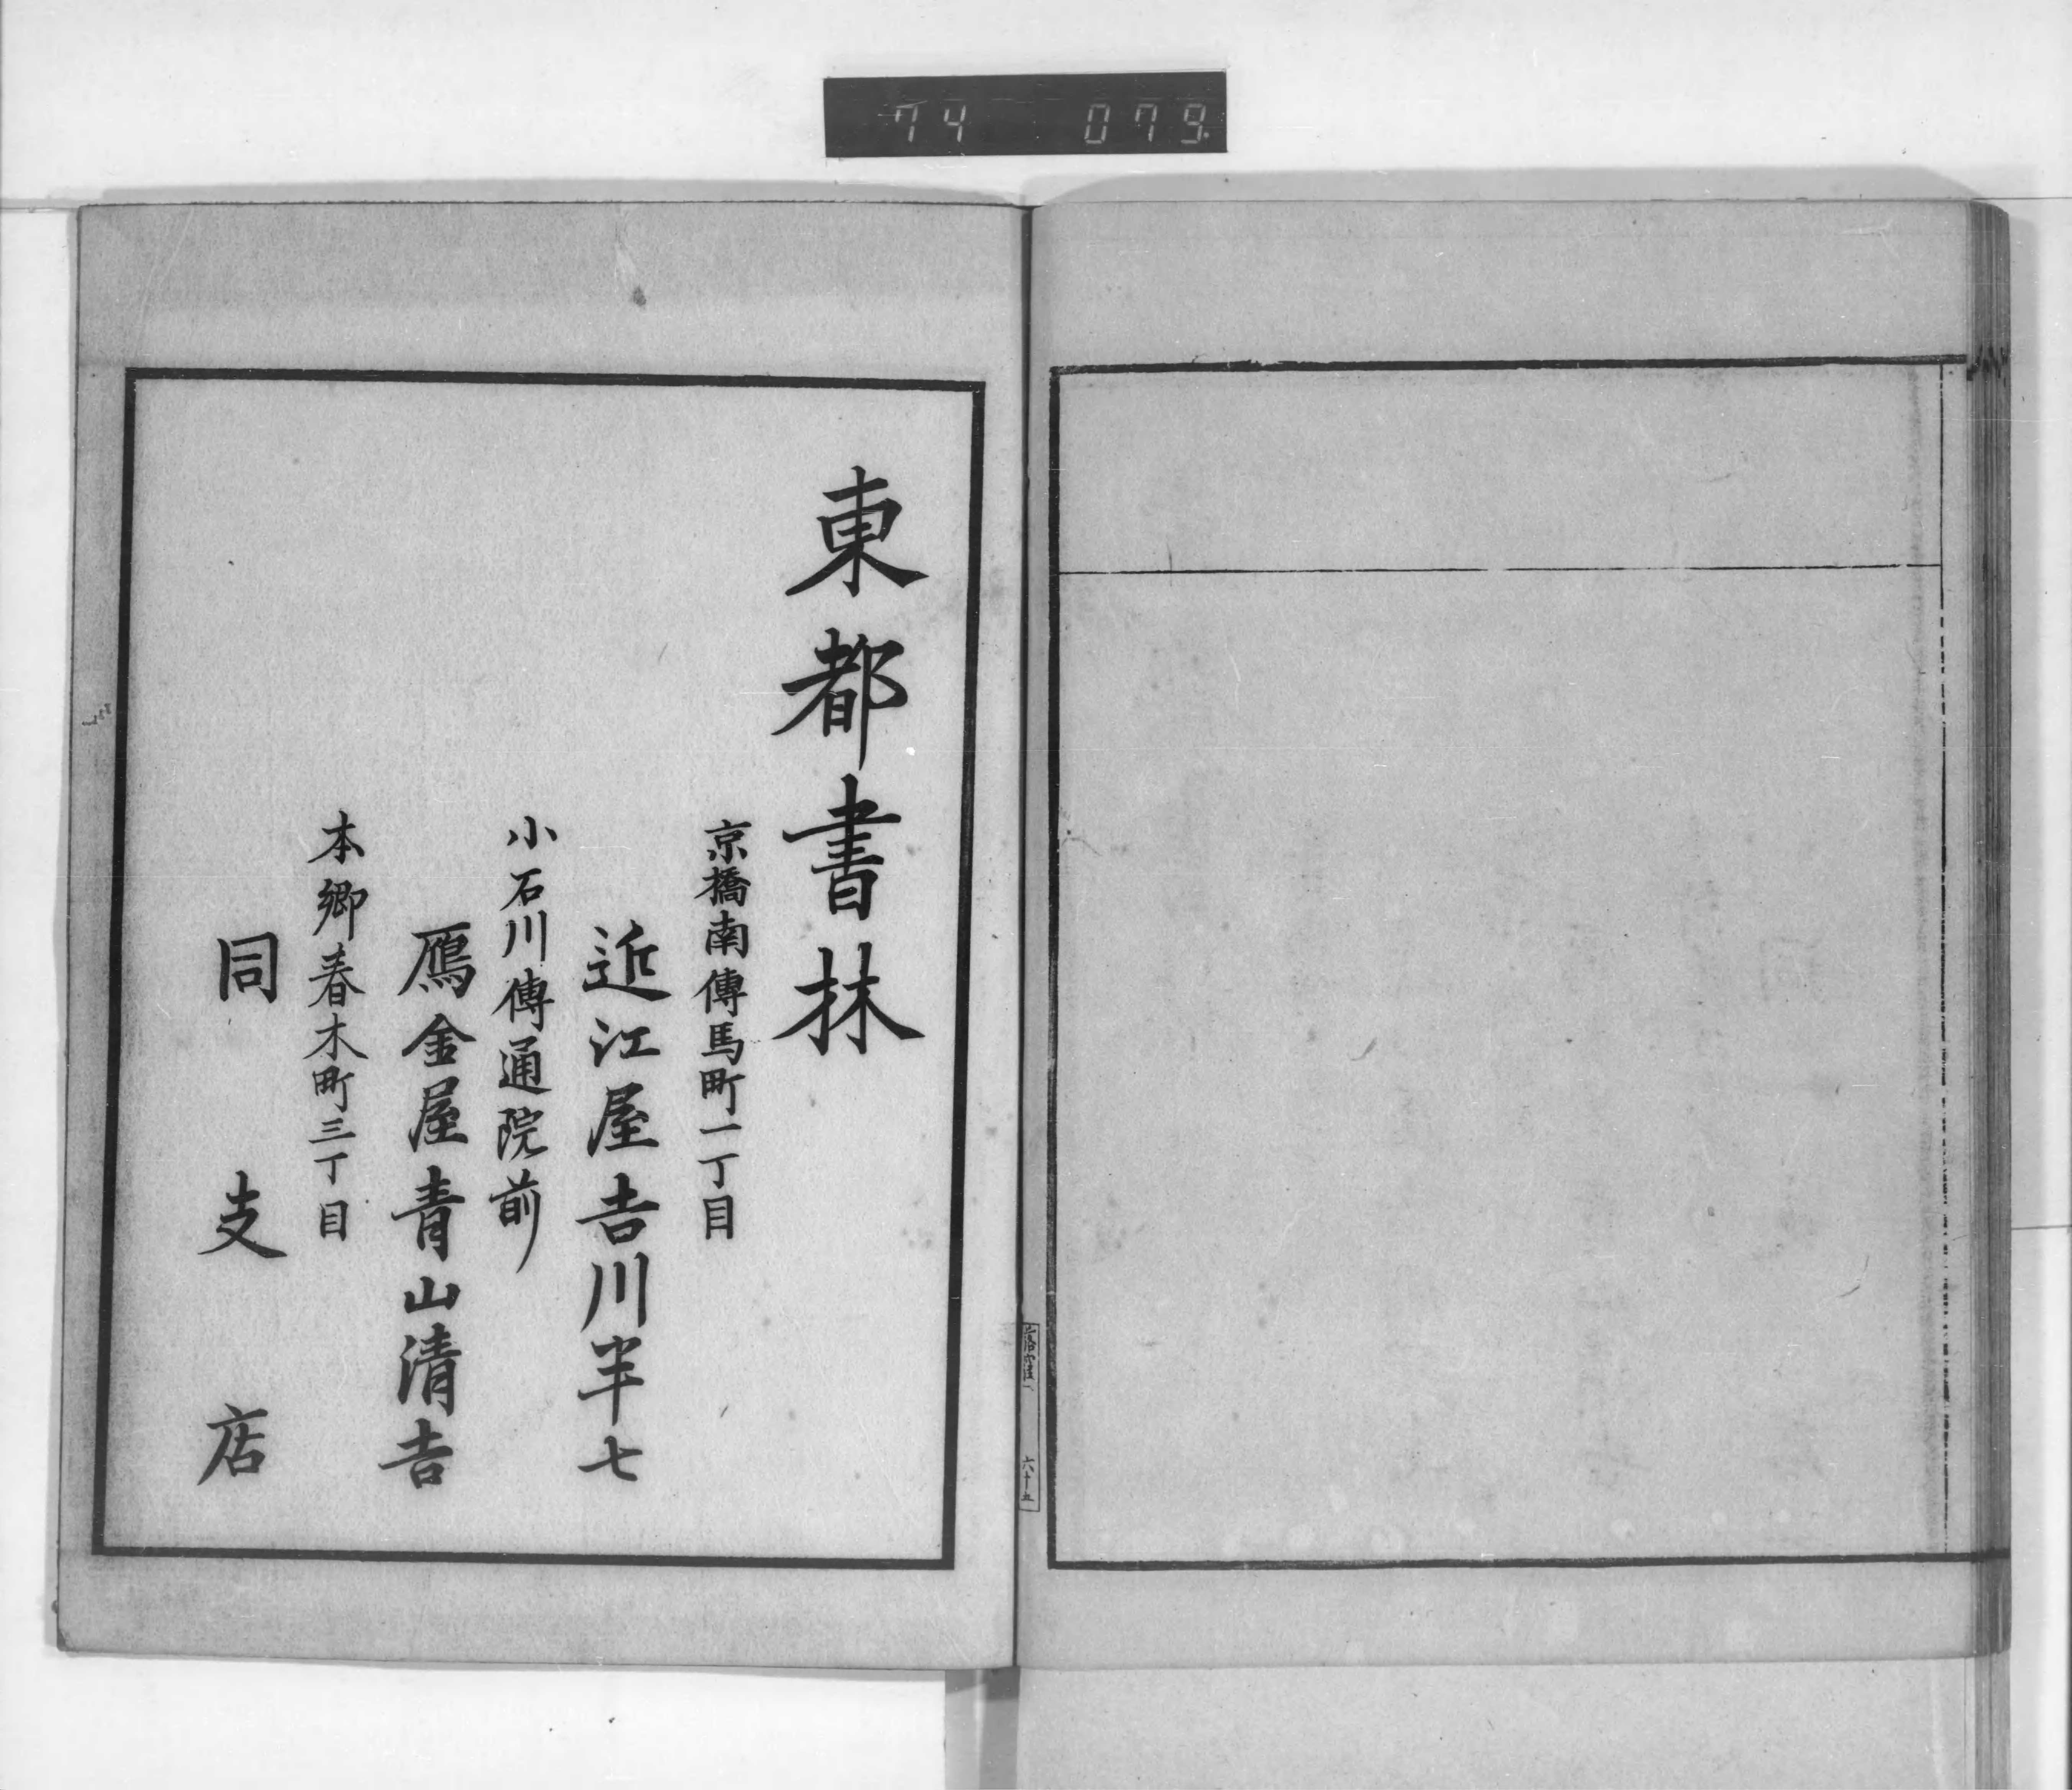 74 079
東都書林
京橋南傳馬町一丁目
近江屋吉川半七
小石川傳通院前
鴈金屋青山清吉
本郷春木町三丁目
同支店
六十五